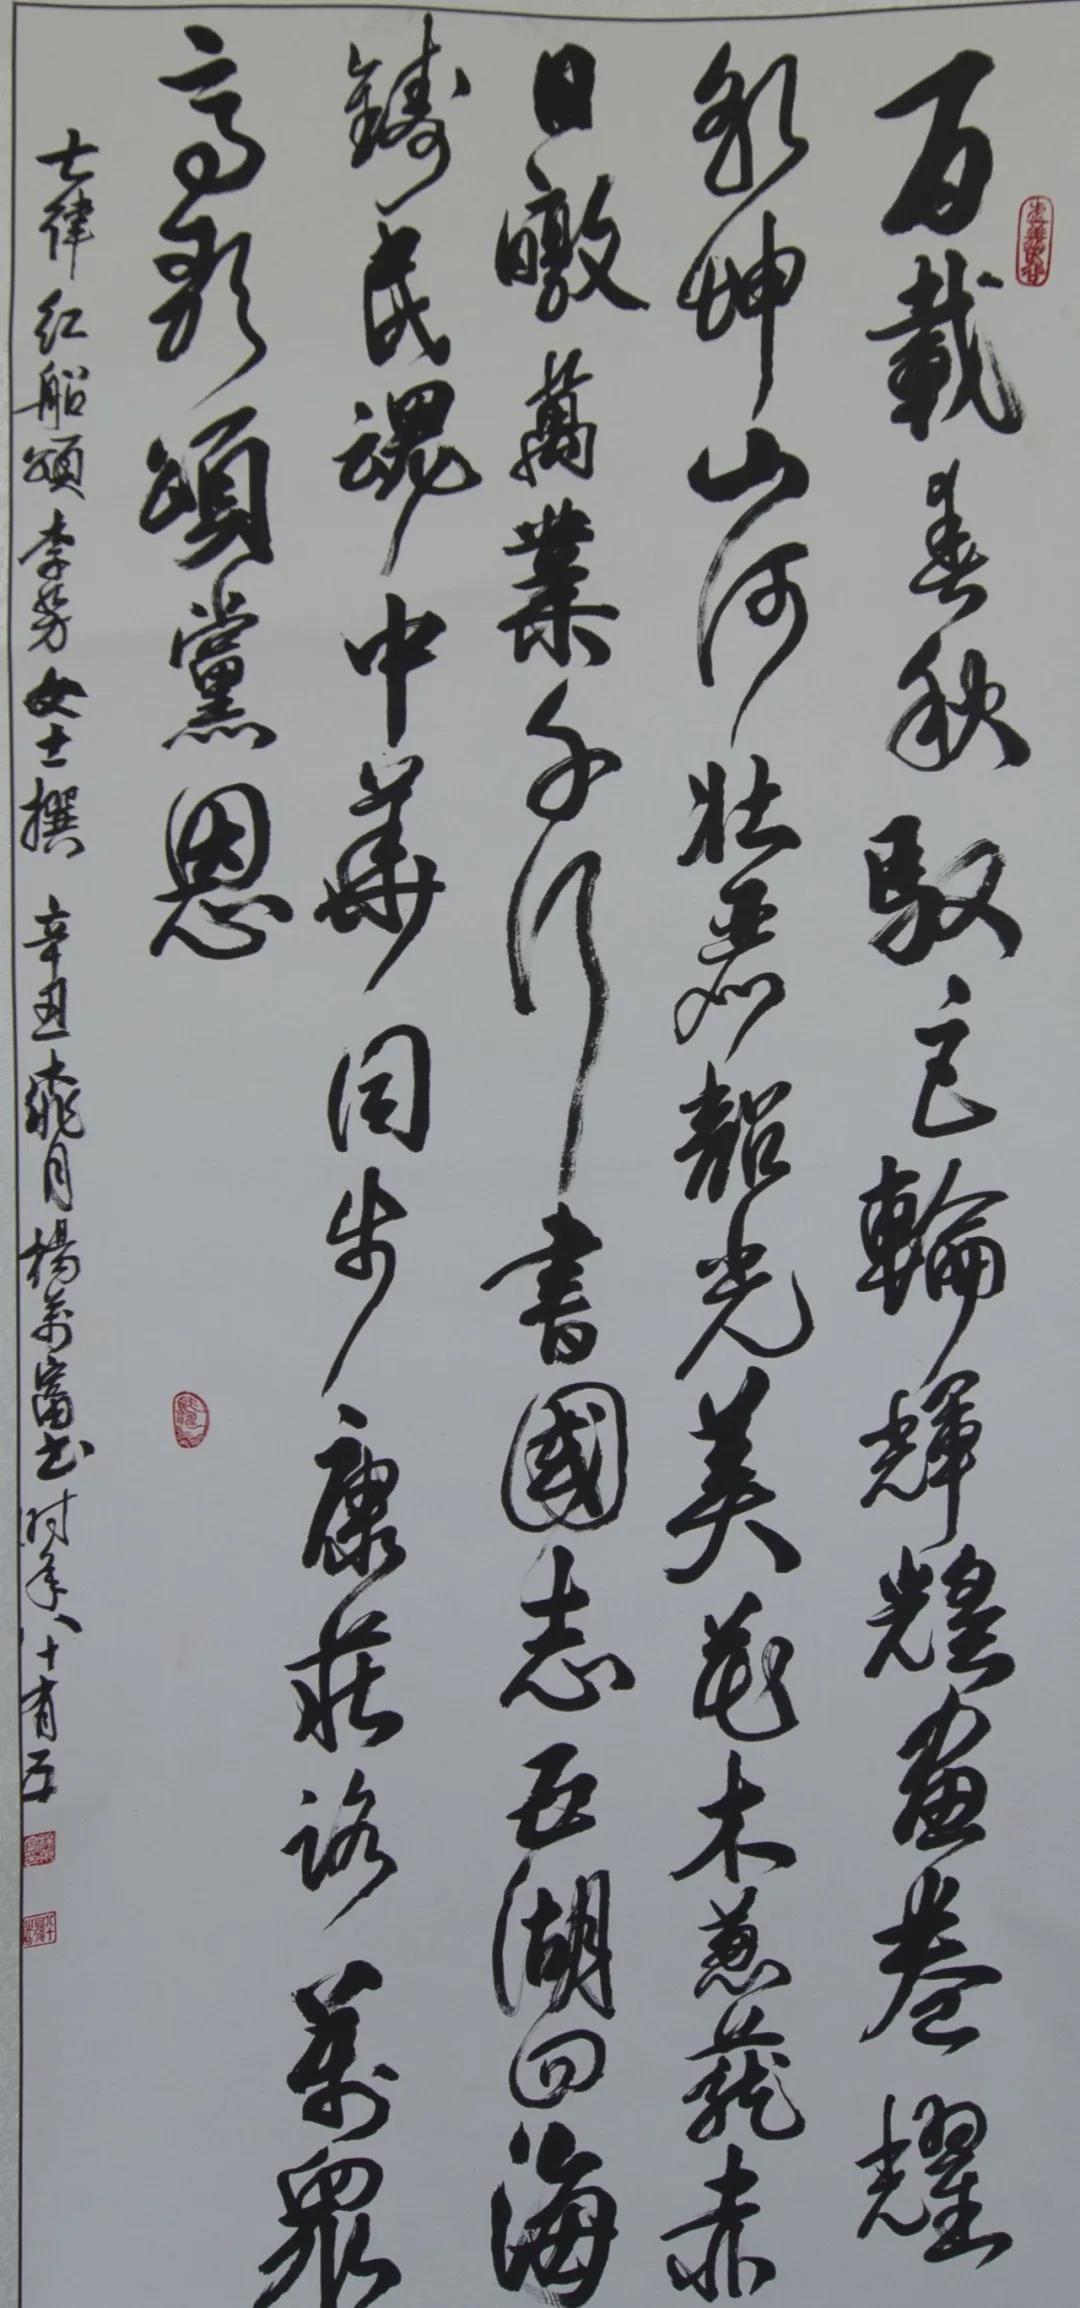 百載春秋馭巨輪輝煌畫卷耀
乾坤山河壯麗韶光美花木蔥蘢赤
日暾萬業千行書國志五湖四海
鑄民魂中華同步康莊路萬眾
高歌頌黨恩
七律红船頌李芳女士撰 辛丑桃月楊萬富书时年八十有五